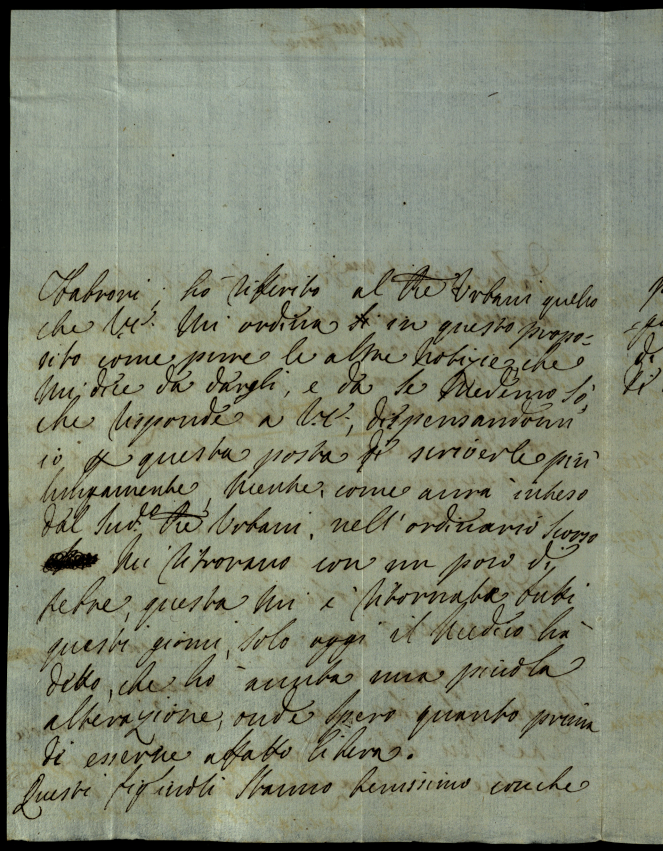 Fabroni, ho riferito al Pre Urbani quello
che V.E. mi ordina in questo propo=
sito come pure le altre notizie, che
mi dice da dargli, e da se medemo sò,
che risponde a V.E., dispensandomi
io questa posta di scriverle più
lungamente, mentre, come aurà inteso
dal Sud.º Pre Urbani, nell'ordinario scorso
mi ritrovavo con un poco di
febre, questa mi è ritornata tutti
questi giorni, solo oggi il medico hà
detto, che hò auuta una piccola
alterazione, onde spero quanto prima
di esserne affatto libera.
Questi figliuoli stanno benissimo, con che